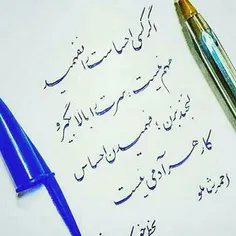 اگر کسی احساست را نفهمید
مهم نیست، سرت را بالا بگیر و
لبخند بزن؛ فهمیدن احساس
کار هر آدمی نیست
احمد شاملو